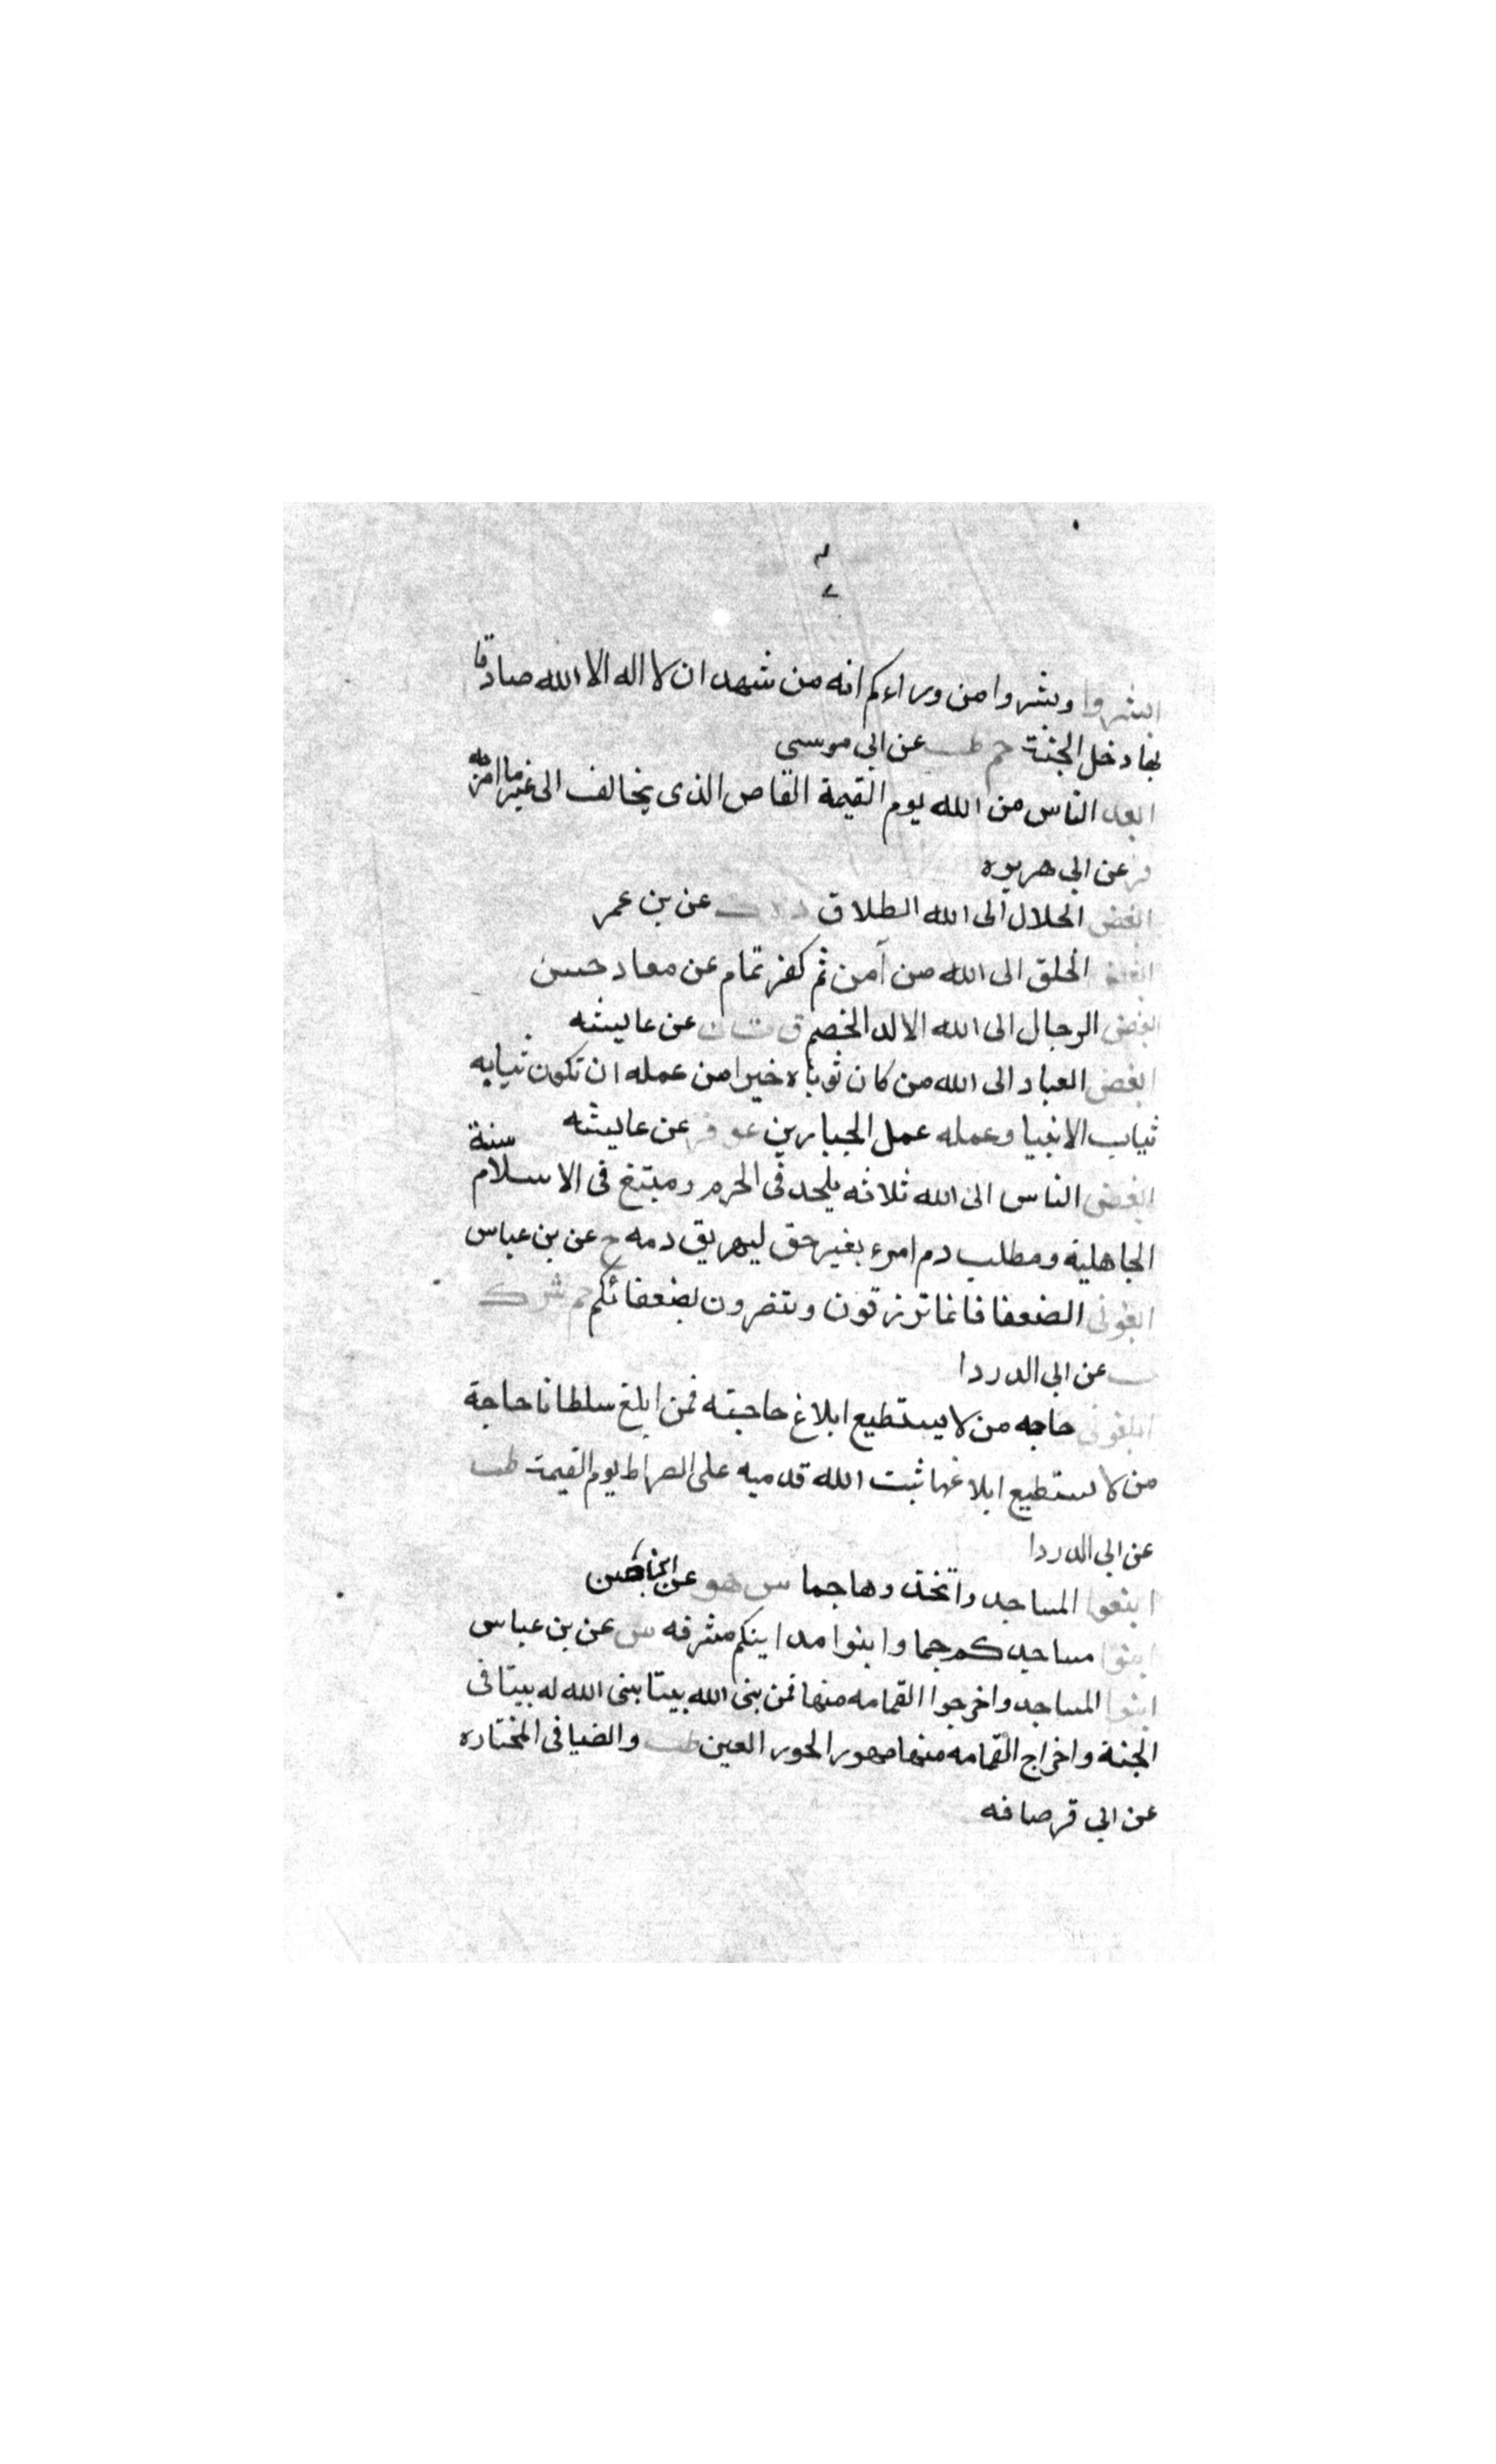 ابشروا وبشروا من وراءكم انه من شهد ان لا اله الا الله صادقا
بها دخل الجنة حم طب عن ابي موسى
ابعد الناس من الله يوم القيمة القاص الذى يخالف الى غير ما امر به
فر عن ابي هريره
ابغض الحلال الى الله الطلاق عن بن عمر
ابغض الخلق الى الله من آمن ثم كفر تمام عن معاد حسن
ابغض الرجال الى الله الالد الخصم ق ت ن عن عايشه
ابغض العباد الى الله من كان ثوباه خيرا من عمله ان تكون ثيابه
ثياب الانبيا وعمله عمل الجبارين عق فر عن عايشه
ابغض الناس الى الله ثلاثه ملحد فى الحرم ومبتغ فى الاسلام سنة
الجاهلية ومطلب دم امرء بغير حق ليهريق دمه خ عن بن عباس
ابغونى الضعفا فانما ترزقون وتنصرون بضعفائكم حم ك
عن ابي الدردا
ابلغونى حاجه من لا يستطيع ابلاغ حاجته فمن ابلغ سلطانا حاجة
من لا يستطيع ابلاغها ثبت الله قدميه على الصراط يوم القيمة طب
عن ابي الدردا
ابنوا المساجد واتخذوها جما ش هق عن
ابنوا مساجدكم جما وابنوا مداينكم مشرفه ش عن بن عباس
ابنوا المساجد واخرجوا القمامه منها فمن بنى الله بيتا بنى الله له بيتا فى
الجنة واخراج القمامه منها مهور الحور العين طب والضيا فى المختاره
عن ابي قرصافه